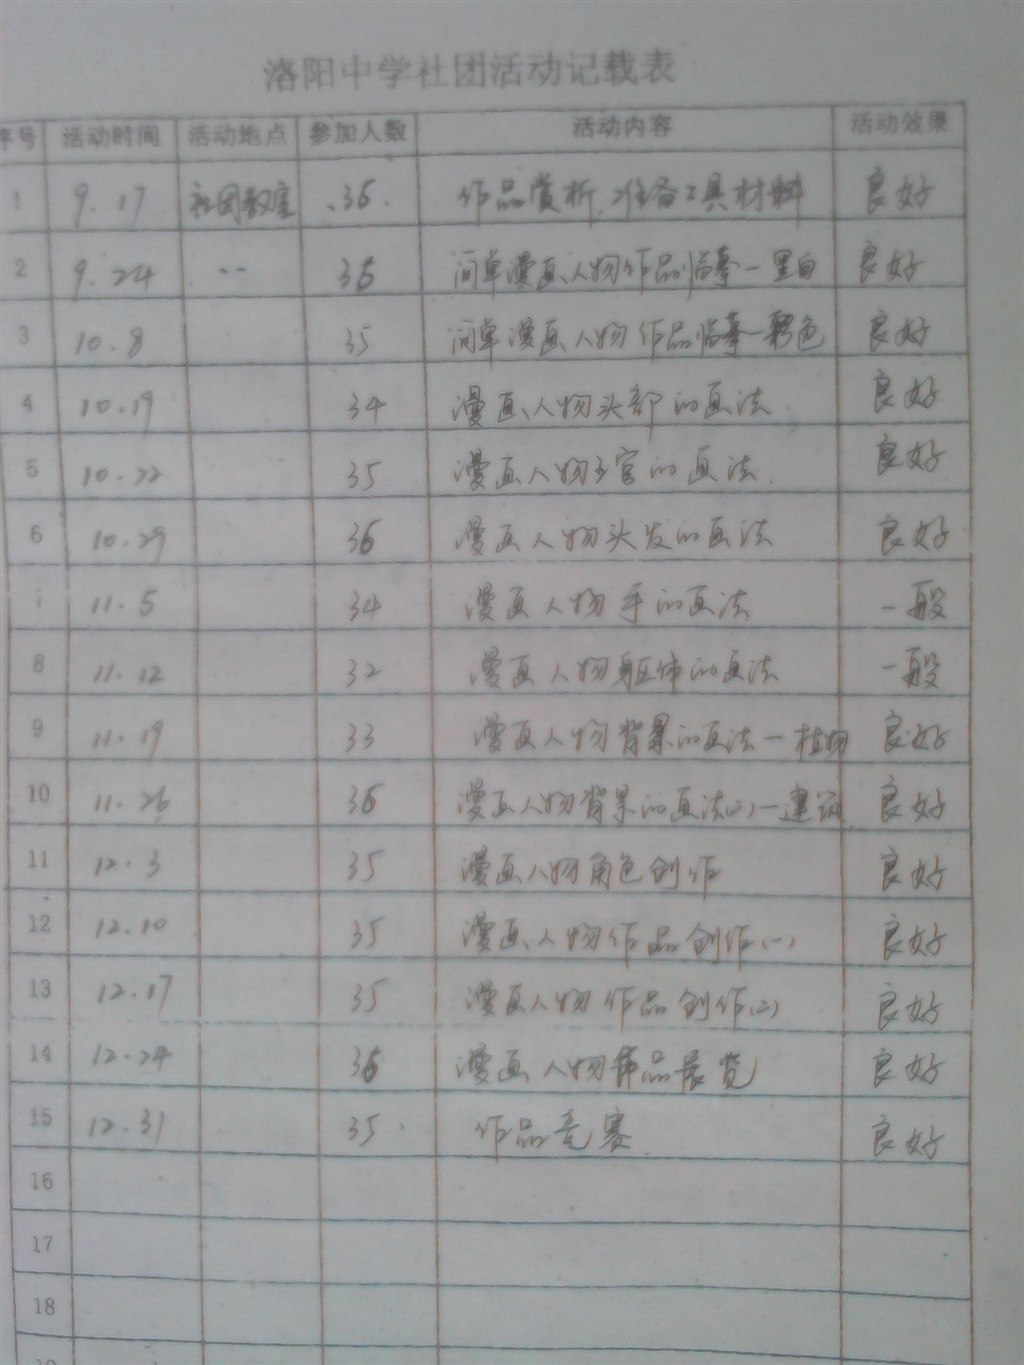 洛阳中学社团活动记载表
序号 活动时间 活动地点 参加人数 活动内容 活动效果
1 9.17 社团教室 36 作品赏析、准备工具材料 良好
2 9.24 36 简单漫画人物作品临摹—黑白 良好
3 10.8 35 简单漫画人物作品临摹—彩色 良好
4 10.19 34 漫画人物头部的画法 良好
5 10.22 35 漫画人物五官的画法 良好
6 10.29 36 漫画人物头发的画法 良好
11.5 34 漫画人物手的画法 一般
8 11.12 32 漫画人物躯体的画法 一般
9 11.19 33 漫画人物背景的画法—植物 良好
10 11.26 36 漫画人物背景的画法(二)—建筑 良好
11 12.3 35 漫画人物角色创作 良好
12 12.10 35 漫画人物作品创作(一) 良好
13 12.17 35 漫画人物作品创作(二) 良好
14 12.24 36 漫画人物作品展览 良好
15 12.31 35 作品竞赛 良好
16
17
18